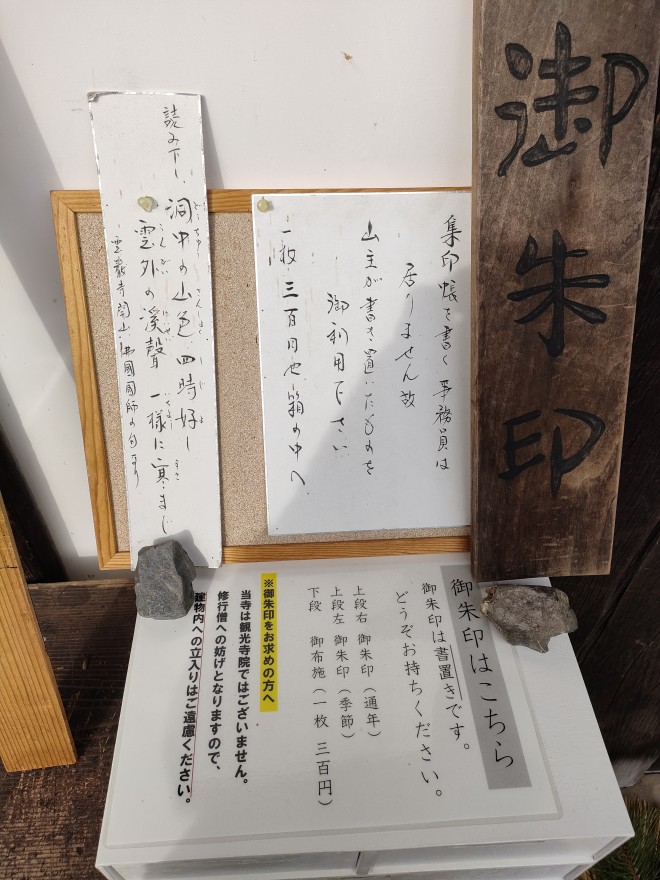 御朱印
集印帳を書く事務員は
居りません故
山主が書き置いたものを
御利用下さい
一枚 三百円也 箱の中へ
読み下し
洞中の山色 四時好し
雲外の溪聲 一様に寒まじ
雲巌寺開山 佛國國師の句なり
御朱印はこちら
御朱印は書置きです。
どうぞお持ちください。
上段右 御朱印（通年）
上段左 御朱印（季節）
下段 御布施（一枚 三百円）
※御朱印をお求めの方へ
当寺は観光寺院ではございません。
修行僧への妨げとなりますので、
建物内への立入りはご遠慮ください。